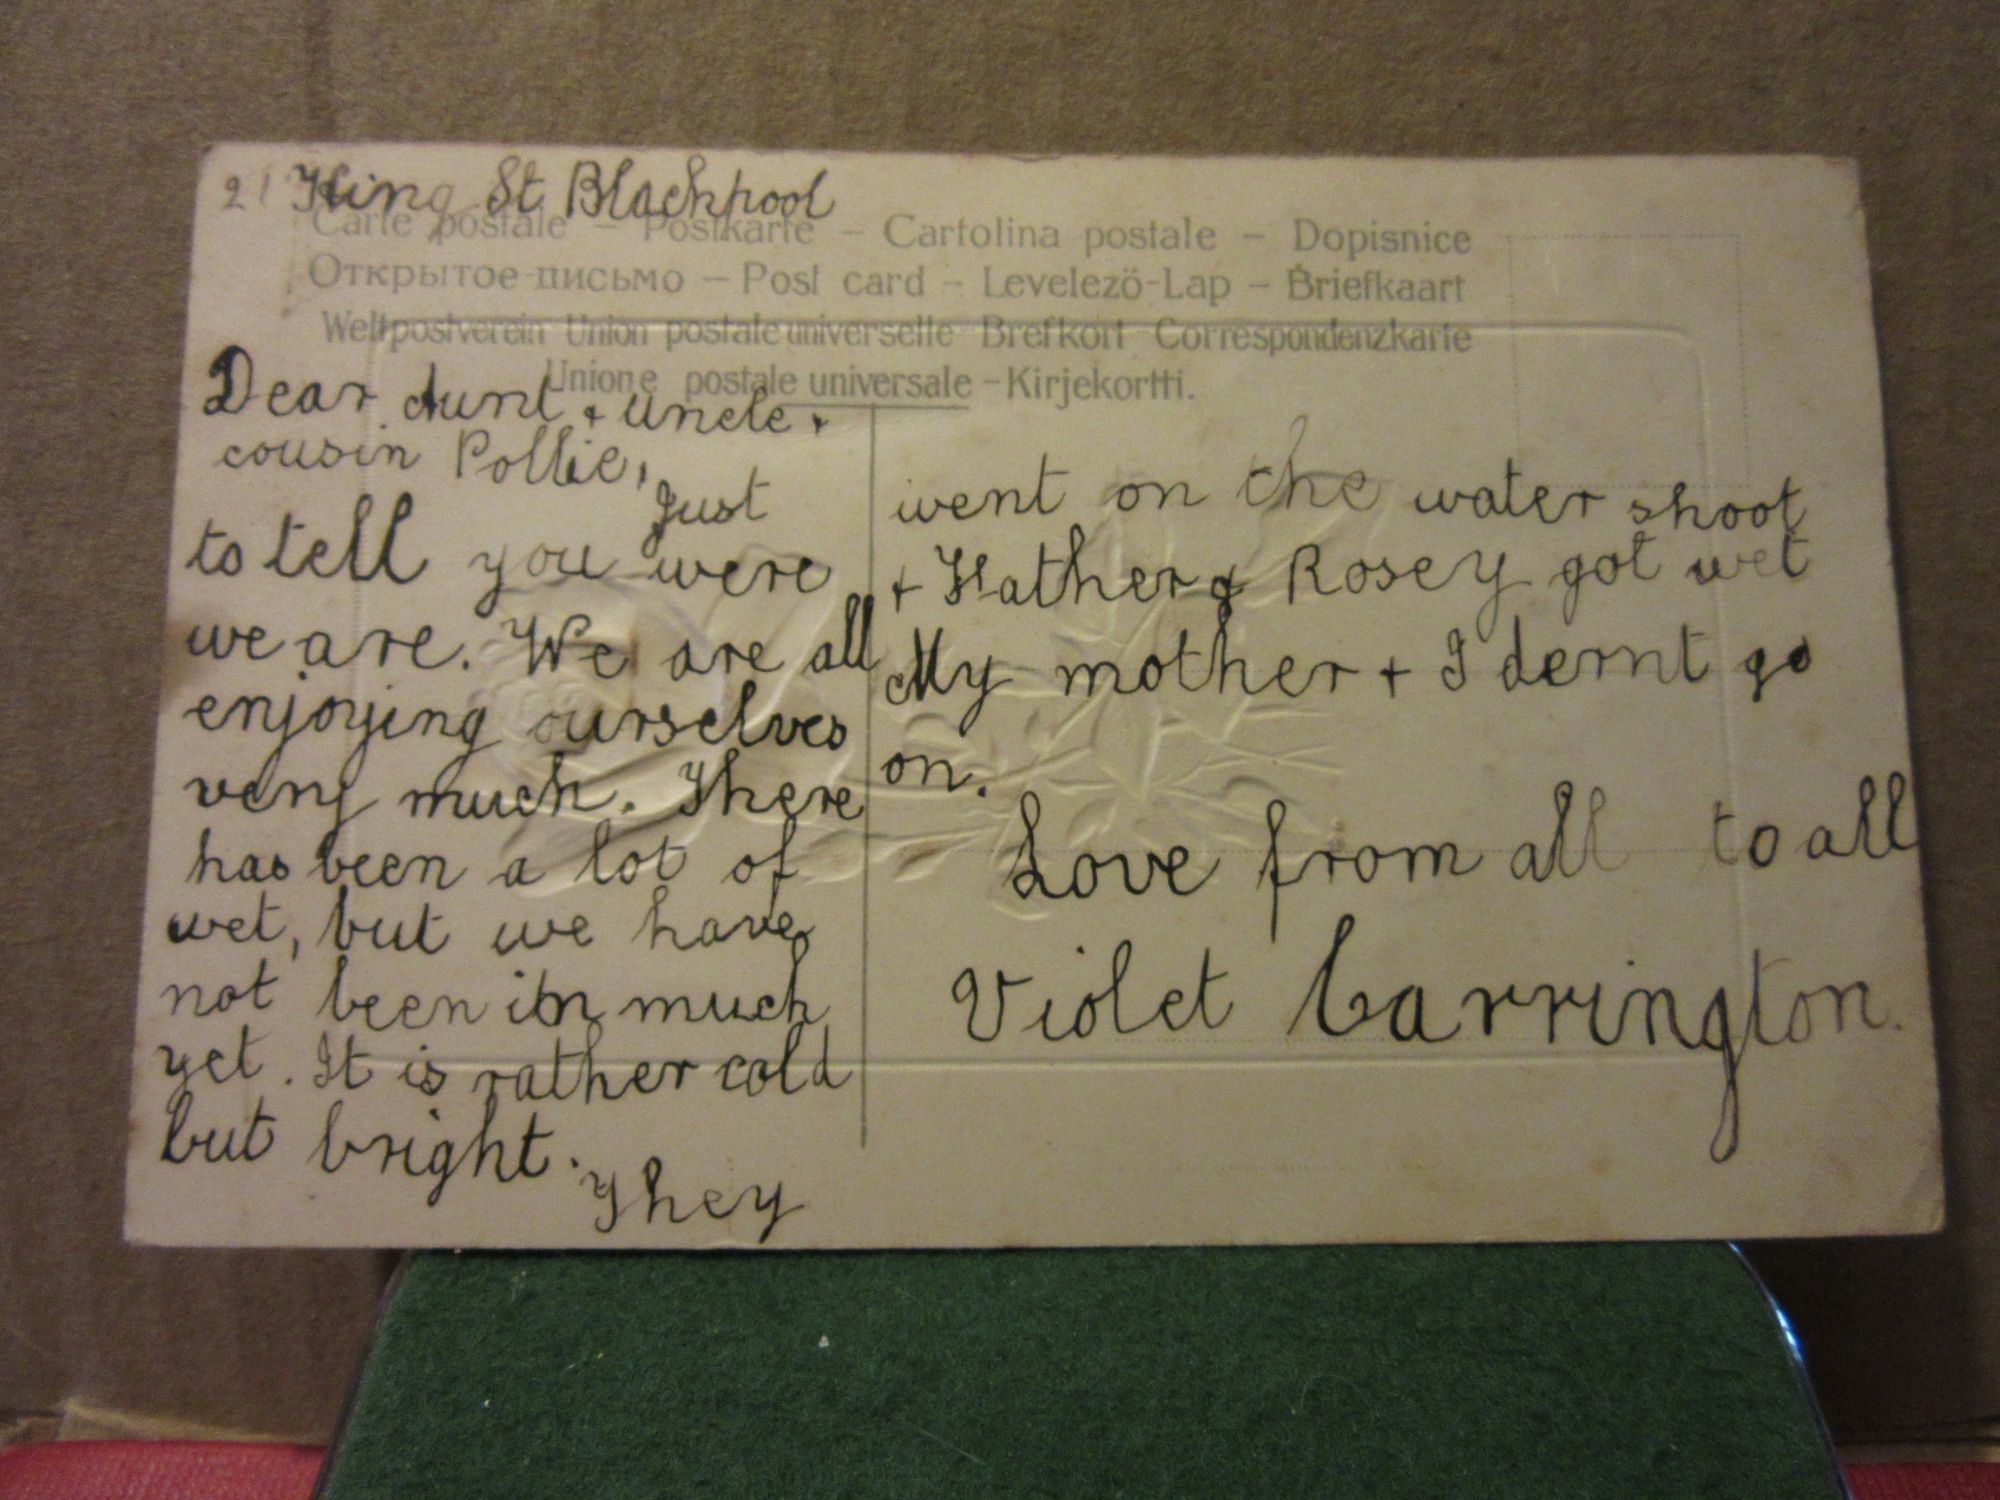 21 King St Blackpool
Carte postale – Postkarte – Cartolina postale – Dopisnice
Открытое-письмо – Post card – Levelező-Lap – Briefkaart
Weltpostverein Union postale universelle Brefkort Correspondenzkarte
Unione postale universale – Kirjekortti.
Dear Aunt & Uncle &
cousin Pollie,
Just
to tell you were
we are. We are all
enjoying ourselves
very much. There
has been a lot of
wet, but we have
not been in much
yet. It is rather cold
but bright. They
went on the water shoot
+ Father & Rosey got wet
My mother + I dernt go
on.
Love from all to all
Violet Carrington.